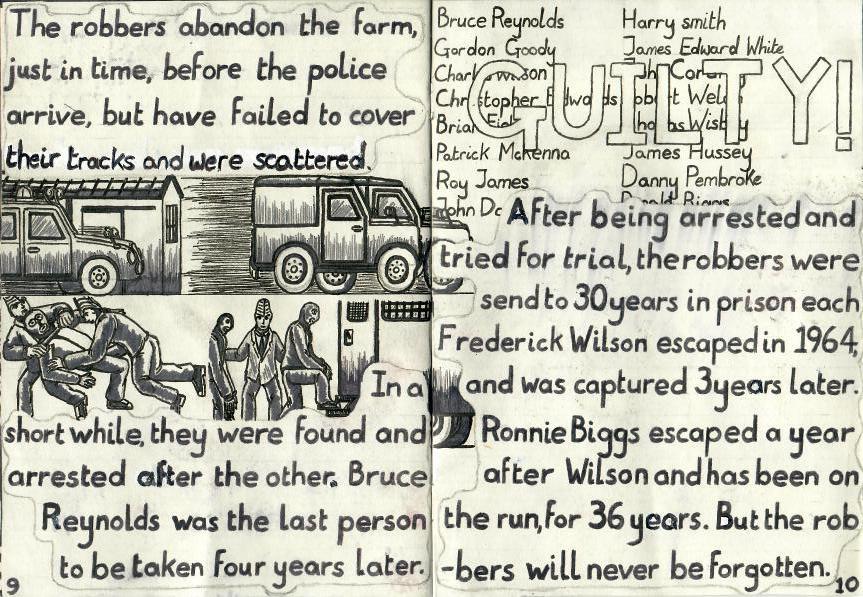 The robbers abandon the farm,
just in time, before the police
arrive, but have failed to cover
their tracks and were scattered.
In a
short while, they were found and
arrested after the other. Bruce
Reynolds was the last person
to be taken four years later.
9
Bruce Reynolds
Gordon Goody
Wilson
Christopher Edwards
Brian
Patrick McKenna
Roy James
John
Harry smith
James Edward White
James Hussey
Danny Pembroke
GUILTY!
After being arrested and
tried for trial, the robbers were
send to 30 years in prison each
Frederick Wilson escaped in 1964,
and was captured 3 years later.
Ronnie Biggs escaped a year
after Wilson and has been on
the run, for 36 years. But the rob
-bers will never be forgotten.
10